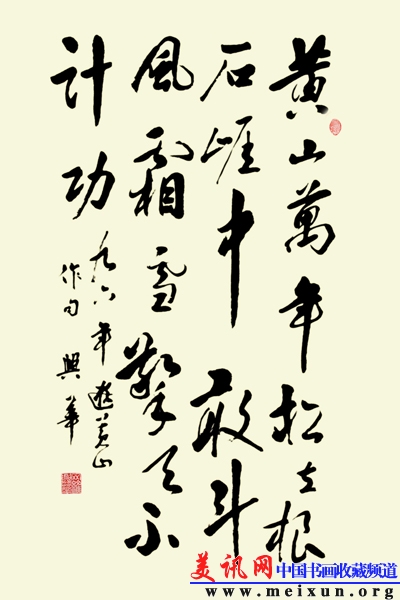 黄山萬年松立根
石崖中敢斗
風霜雪擎天不
計功
九六年遊黄山
作句 興華
美讯网 中国书画收藏频道
www.meixun.org